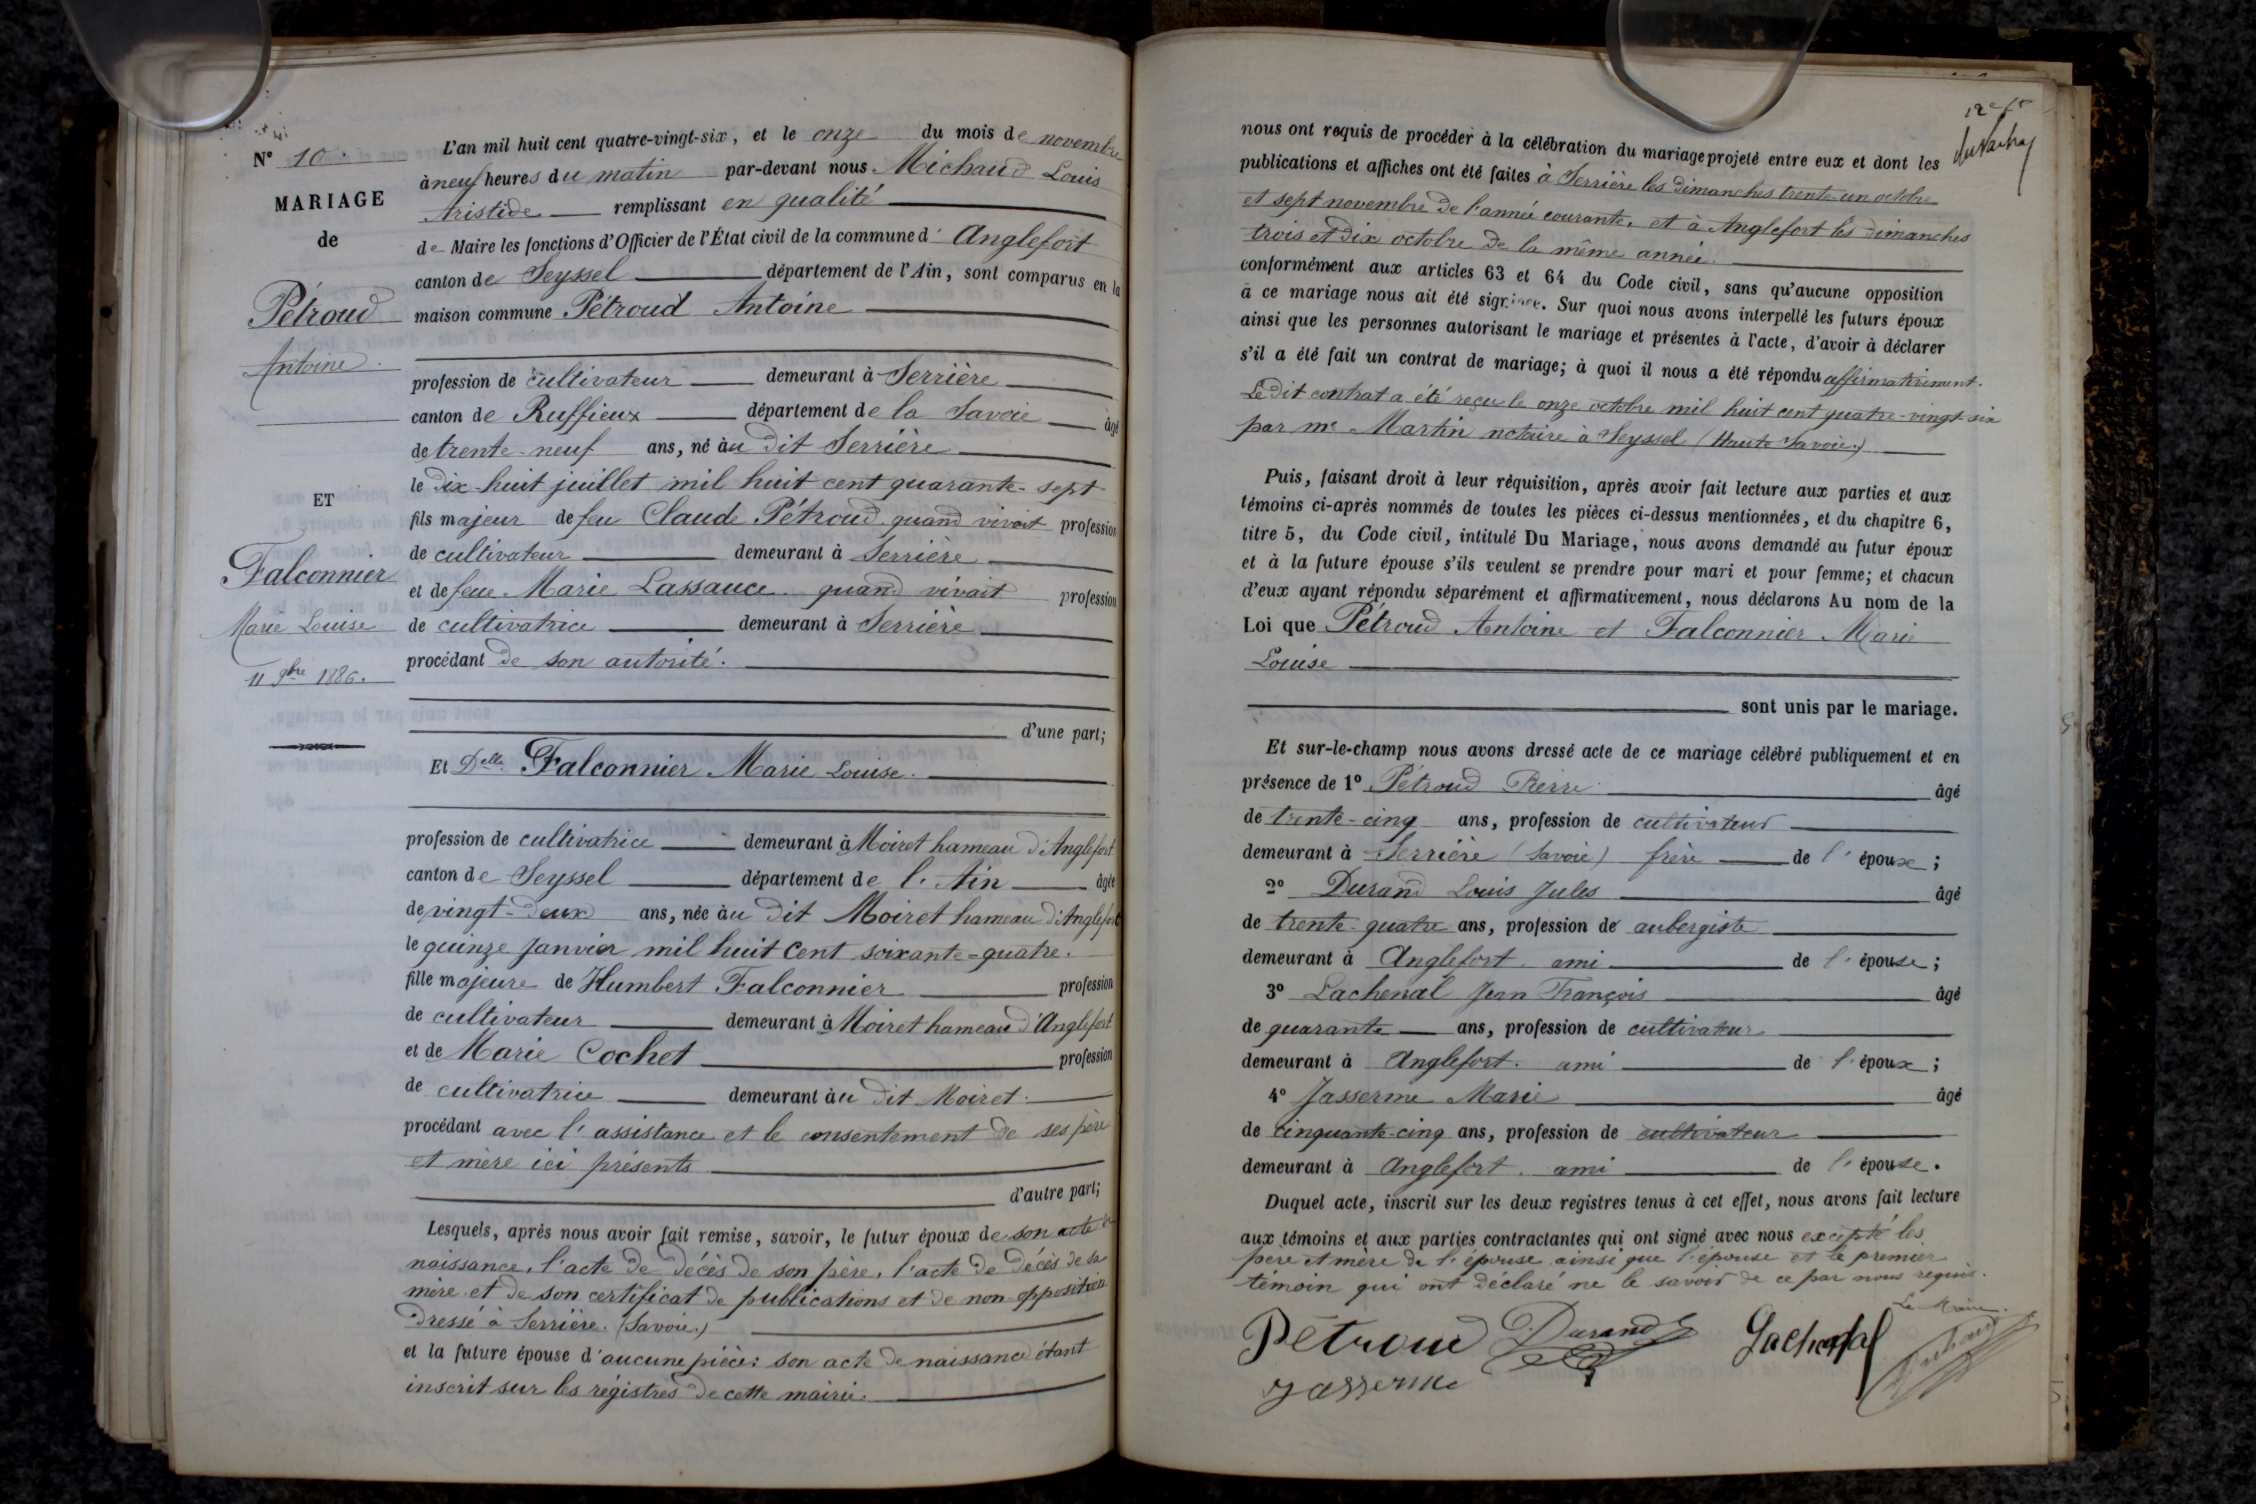 N° 10.
MARIAGE
de
Pétroud
Antoine.
ET
Falconnier
Marie Louise
11 9bre 1886.
L'an mil huit cent quatre-vingt-six, et le onze du mois de novembre
à neuf heures du matin par-devant nous Michaud Louis
Aristide remplissant en qualité
de Maire les fonctions d'Officier de l'État civil de la commune d' Anglefort
canton de Seyssel département de l'Ain, sont comparus en la
maison commune Pétroud Antoine
profession de cultivateur demeurant à Serrière
canton de Ruffieux département de la Savoie âgé
de trente-neuf ans, né àu dit Serrière
le dix-huit juillet mil huit cent quarante-sept
fils majeur de feu Claude Pétroud quand vivait profession
de cultivateur demeurant à Serrière
et de feue Marie Lassauce quand vivait profession
de cultivatrice demeurant à Serrière
procédant de son autorité.
d'une part;
Et Delle Falconnier Marie Louise.
profession de cultivatrice demeurant à Moiret hameau d'Anglefort
canton de Seyssel département de l'Ain âgée
de vingt-deux ans, née àu dit Moiret hameau d'Anglefort
le quinze Janvier mil huit cent soixante-quatre.
fille majeure de Humbert Falconnier profession
de cultivateur demeurant à Moiret hameau d'Anglefort
et de Marie Cochet profession
de cultivatrice demeurant àu dit Moiret.
procédant avec l'assistance et le consentement de ses père
et mère ici présents
d'autre part;
Lesquels, après nous avoir fait remise, savoir, le futur époux de son acte de
naissance, l'acte de décès de son père, l'acte de décès de sa
mère et de son certificat de publications et de non opposition
dressé à Serrière. (Savoie.)
et la future épouse d'aucune pièce: son acte de naissance étant
inscrit sur les régistres de cette mairie.
nous ont requis de procéder à la célébration du mariage projeté entre eux et dont les
publications et affiches ont été faites à Serrière les dimanches trente-un octobre
et sept novembre de l'année courante, et à Anglefort les dimanches
trois et dix octobre de la même année.
conformément aux articles 63 et 64 du Code civil, sans qu'aucune opposition
à ce mariage nous ait été signifiée. Sur quoi nous avons interpellé les futurs époux
ainsi que les personnes autorisant le mariage et présentes à l'acte, d'avoir à déclarer
s'il a été fait un contrat de mariage; à quoi il nous a été répondu affirmativement.
Le dit contrat a été reçu le onze octobre mil huit cent quatre-vingt-six
par me Martin notaire à Seyssel (Haute Savoie.)
Puis, faisant droit à leur réquisition, après avoir fait lecture aux parties et aux
témoins ci-après nommés de toutes les pièces ci-dessus mentionnées, et du chapitre 6,
titre 5, du Code civil, intitulé Du Mariage, nous avons demandé au futur époux
et à la future épouse s'ils veulent se prendre pour mari et pour femme; et chacun
d'eux ayant répondu séparément et affirmativement, nous déclarons Au nom de la
Loi que Pétroud Antoine et Falconnier Marie
Louise
sont unis par le mariage.
Et sur-le-champ nous avons dressé acte de ce mariage célébré publiquement et en
présence de 1° Pétroud Pierre âgé
de trente-cinq ans, profession de cultivateur
demeurant à Serrière (Savoie) frère de l'époux;
2° Durand Louis Jules âgé
de trente-quatre ans, profession de aubergiste
demeurant à Anglefort. ami de l'épouse;
3° Lachenal Jean François âgé
de quarante ans, profession de cultivateur
demeurant à Anglefort. ami de l'époux;
4° Jasserme Marie âgé
de cinquante-cinq ans, profession de cultivateur
demeurant à Anglefort. ami de l'épouse.
Duquel acte, inscrit sur les deux registres tenus à cet effet, nous avons fait lecture
aux témoins et aux parties contractantes qui ont signé avec nous excepté les
père et mère de l'épouse ainsi que l'épouse et le premier
témoin qui ont déclaré ne le savoir de ce par nous requis.
Le Maire.
Pétroud Durand Lachenal
Jasserme